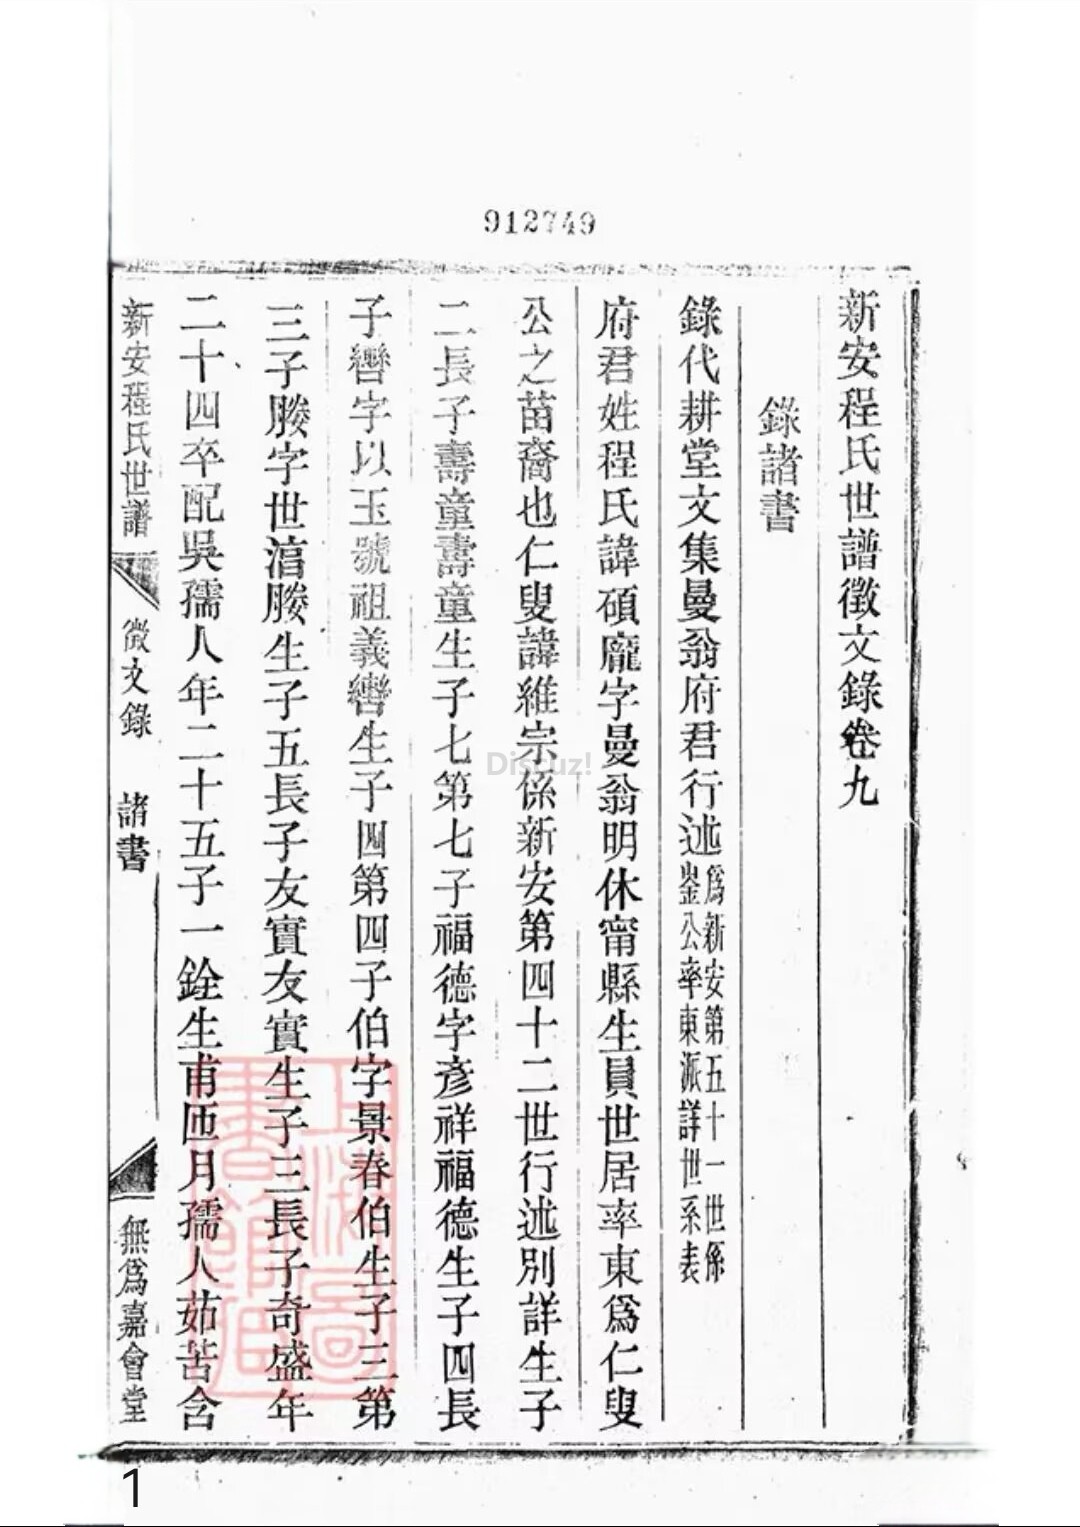 912749
新安程氏世譜徵文錄卷九
錄諸書
錄代耕堂文集曼翁府君行述爲新安第五十一世係
鉴公率東派詳世系表
府君姓程氏諱碩龐字曼翁明休甯縣生員世居率東爲仁叟
公之苗裔也仁叟諱維宗係新安第四十二世行述別詳生子
二長子壽童壽童生子七第七子福德字彥祥福德生子四長
子轡字以玉號祖義轡生子四第四子伯字景春伯生子三第
三子縢字世涫縢生子五長子友實友實生子三長子奇盛年
二十四卒配吳孺人年二十五子一銓生甫匝月孺人茹苦含
新安程氏世譜
徵文錄
諸書
無爲嘉會堂
上海圖書館藏
Discuz!
1